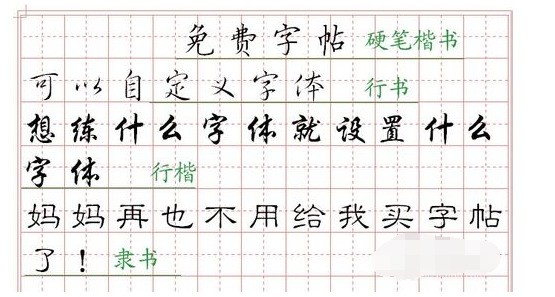 免费字帖 硬笔楷书
可以自定义字体 行书
想练什么字体就设置什么
字体 行楷
妈妈再也不用给我买字帖
了！ 隶书